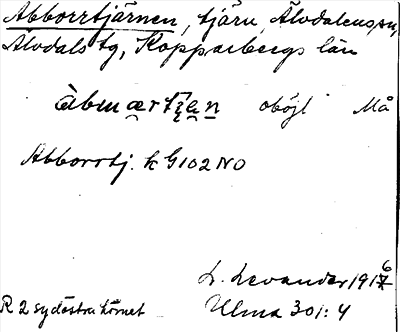 Abborrtjärnen, tjärn, Älvdalens sn,
Älvdals tg, Kopparbergs län
àbmærtʃæn oböjl Må
Abborrtj. k G102 NO
L. Levander 1916
R 2 sydöstra hörnet
Ulma 301:4